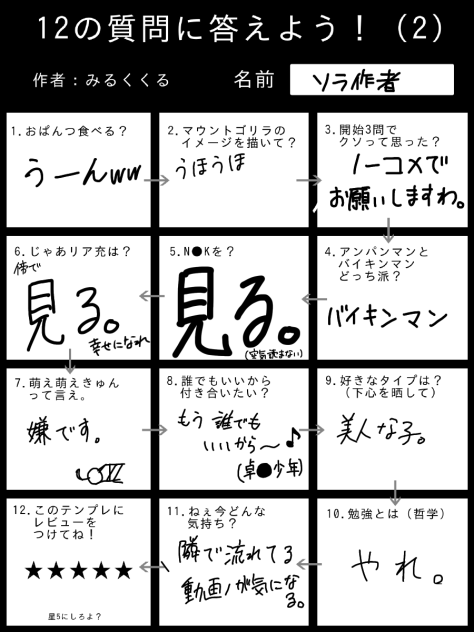 12の質問に答えよう！（2）
作者：みるくくる
名前
ソラ作者
1.おぱんつ食べる？
うーんww
2.マウントゴリラの
イメージを描いて？
うほうほ
3.開始3問で
クソって思った？
ノーコメで
お願いしますわ。
4.アンパンマンと
バイキンマン
どっち派？
バイキンマン
5.N●Kを？
見る。
(空気読まない)
6.じゃあリア充は？
陰で
見る。
幸せになれ
7.萌え萌えきゅん
って言え。
嫌です。
8.誰でもいいから
付き合いたい？
もう誰でも
いいから〜♪
(卓●少年)
9.好きなタイプは？
（下心を晒して）
美人な子。
10.勉強とは（哲学）
やれ。
11.ねぇ今どんな
気持ち？
隣で流れてる
動画が気にな
る。
12.このテンプレに
レビューを
つけてね！
★★★★★
星5にしろよ？